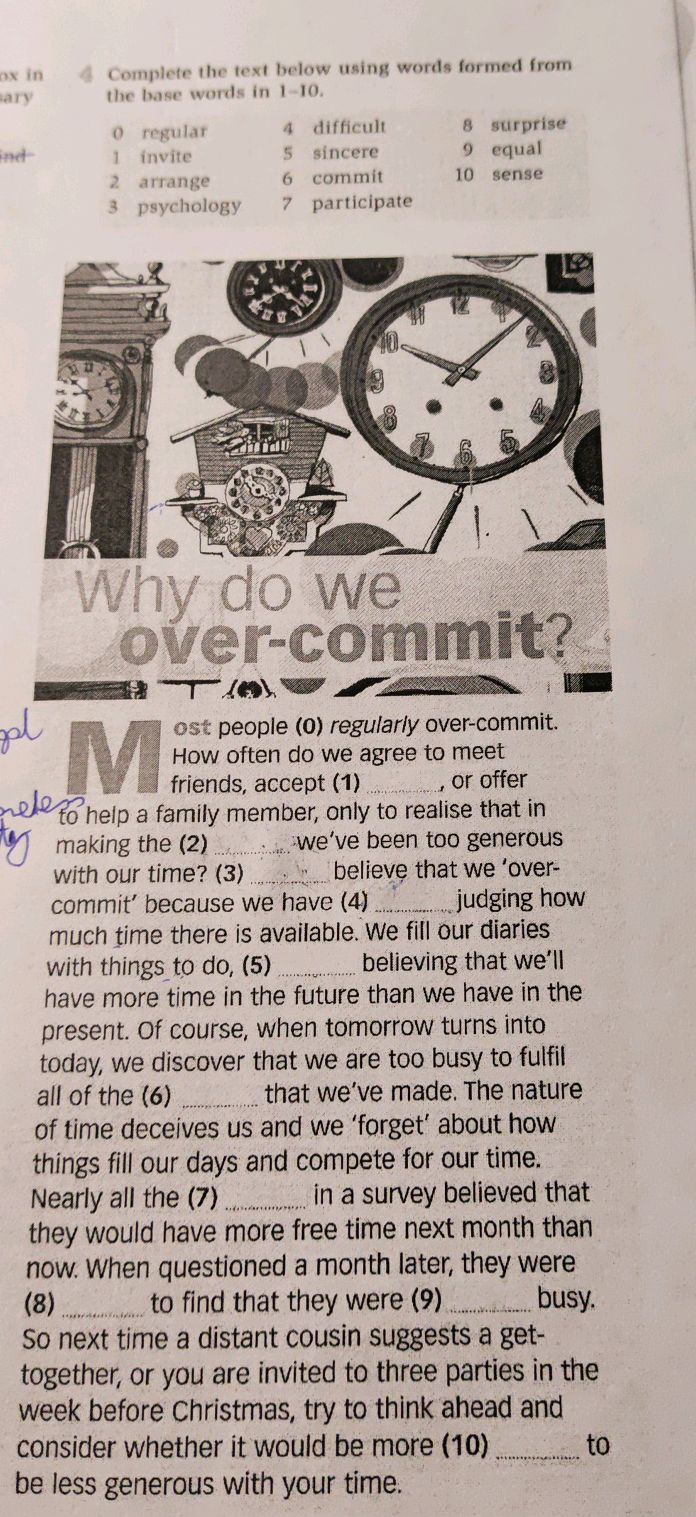 ox in
ary
ind
4 Complete the text below using words formed from
the base words in 1–10.
0 regular 4 difficult 8 surprise
1 invite 5 sincere 9 equal
2 arrange 6 commit 10 sense
3 psychology 7 participate
Why do we
over-commit?
Most people (0) regularly over-commit.
How often do we agree to meet
friends, accept (1) ............, or offer
to help a family member, only to realise that in
making the (2) ............ we've been too generous
with our time? (3) ............ believe that we 'over-
commit' because we have (4) ............ judging how
much time there is available. We fill our diaries
with things to do, (5) ............ believing that we'll
have more time in the future than we have in the
present. Of course, when tomorrow turns into
today, we discover that we are too busy to fulfil
all of the (6) ............ that we've made. The nature
of time deceives us and we 'forget' about how
things fill our days and compete for our time.
Nearly all the (7) ............ in a survey believed that
they would have more free time next month than
now. When questioned a month later, they were
(8) ............ to find that they were (9) ............ busy.
So next time a distant cousin suggests a get-
together, or you are invited to three parties in the
week before Christmas, try to think ahead and
consider whether it would be more (10) ............ to
be less generous with your time.